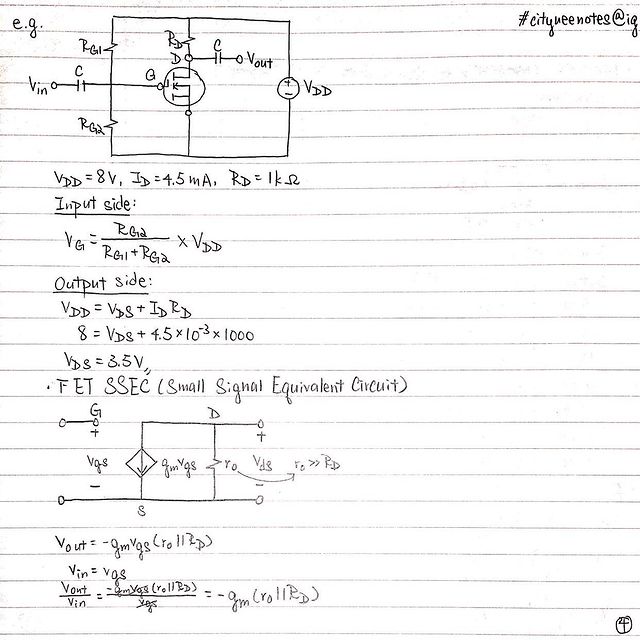 e.g.
#cityueenotes@ig
RG1
RD
C
D
Vout
Vin
C
G
+
-
VDD
RG2
VDD = 8V, ID = 4.5mA, RD = 1kΩ
Input side:
VG = RG2 / RG1+RG2 × VDD
Output side:
VDD = VDS + IDRD
8 = VDS + 4.5×10⁻³×1000
VDS = 3.5V,,
· FET SSEC (Small Signal Equivalent Circuit)
G
D
+
+
vgs
gmvgs
ro
Vds
ro >> RD
-
-
S
Vout = -gmvgs(ro||RD)
Vin = vgs
Vout/Vin = -gmvgs(ro||RD)/vgs = -gm(ro||RD)
4